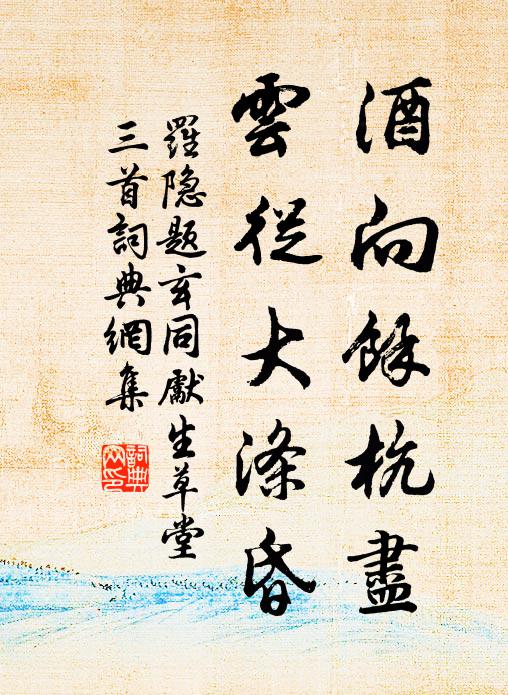 酒向餘杭盡
雲從大滌昏
羅隐题玄同獻生草堂
三首詞典網集
詞典網印